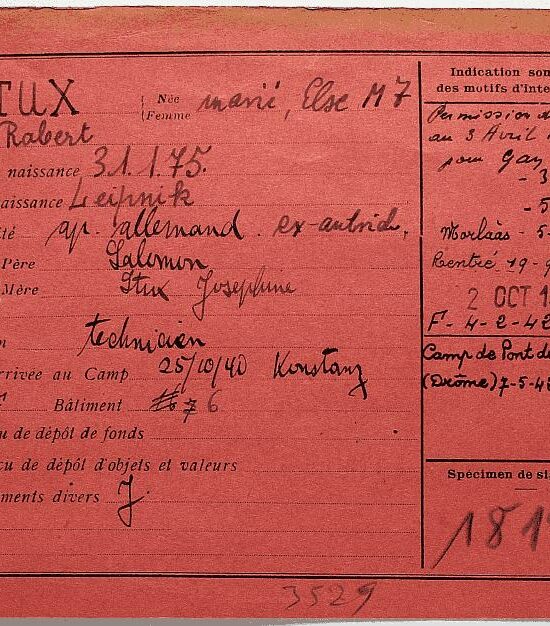 TUX
Née
Femme
marié, Else M 7
Robert
naissance 31.1.75.
aissance Leipnik
té ap. allemand. ex-autrich.
Père Salomon
Mère Stux Josephine
n technicien
rrivée au Camp 25/10/40 Konstanz
Bâtiment 6
u de dépôt de fonds
çu de dépôt d'objets et valeurs
ments divers J.
3529
Indication som
des motifs d'inte
Permission d
au 3 Avril
pour Gan
- 3
- 5
Morlaàs - 5-
Rentré 19-9
2 OCT 1
F- 4-2-42
Camp de Pont de
(Drôme) 7-5-42
Spécimen de si
181